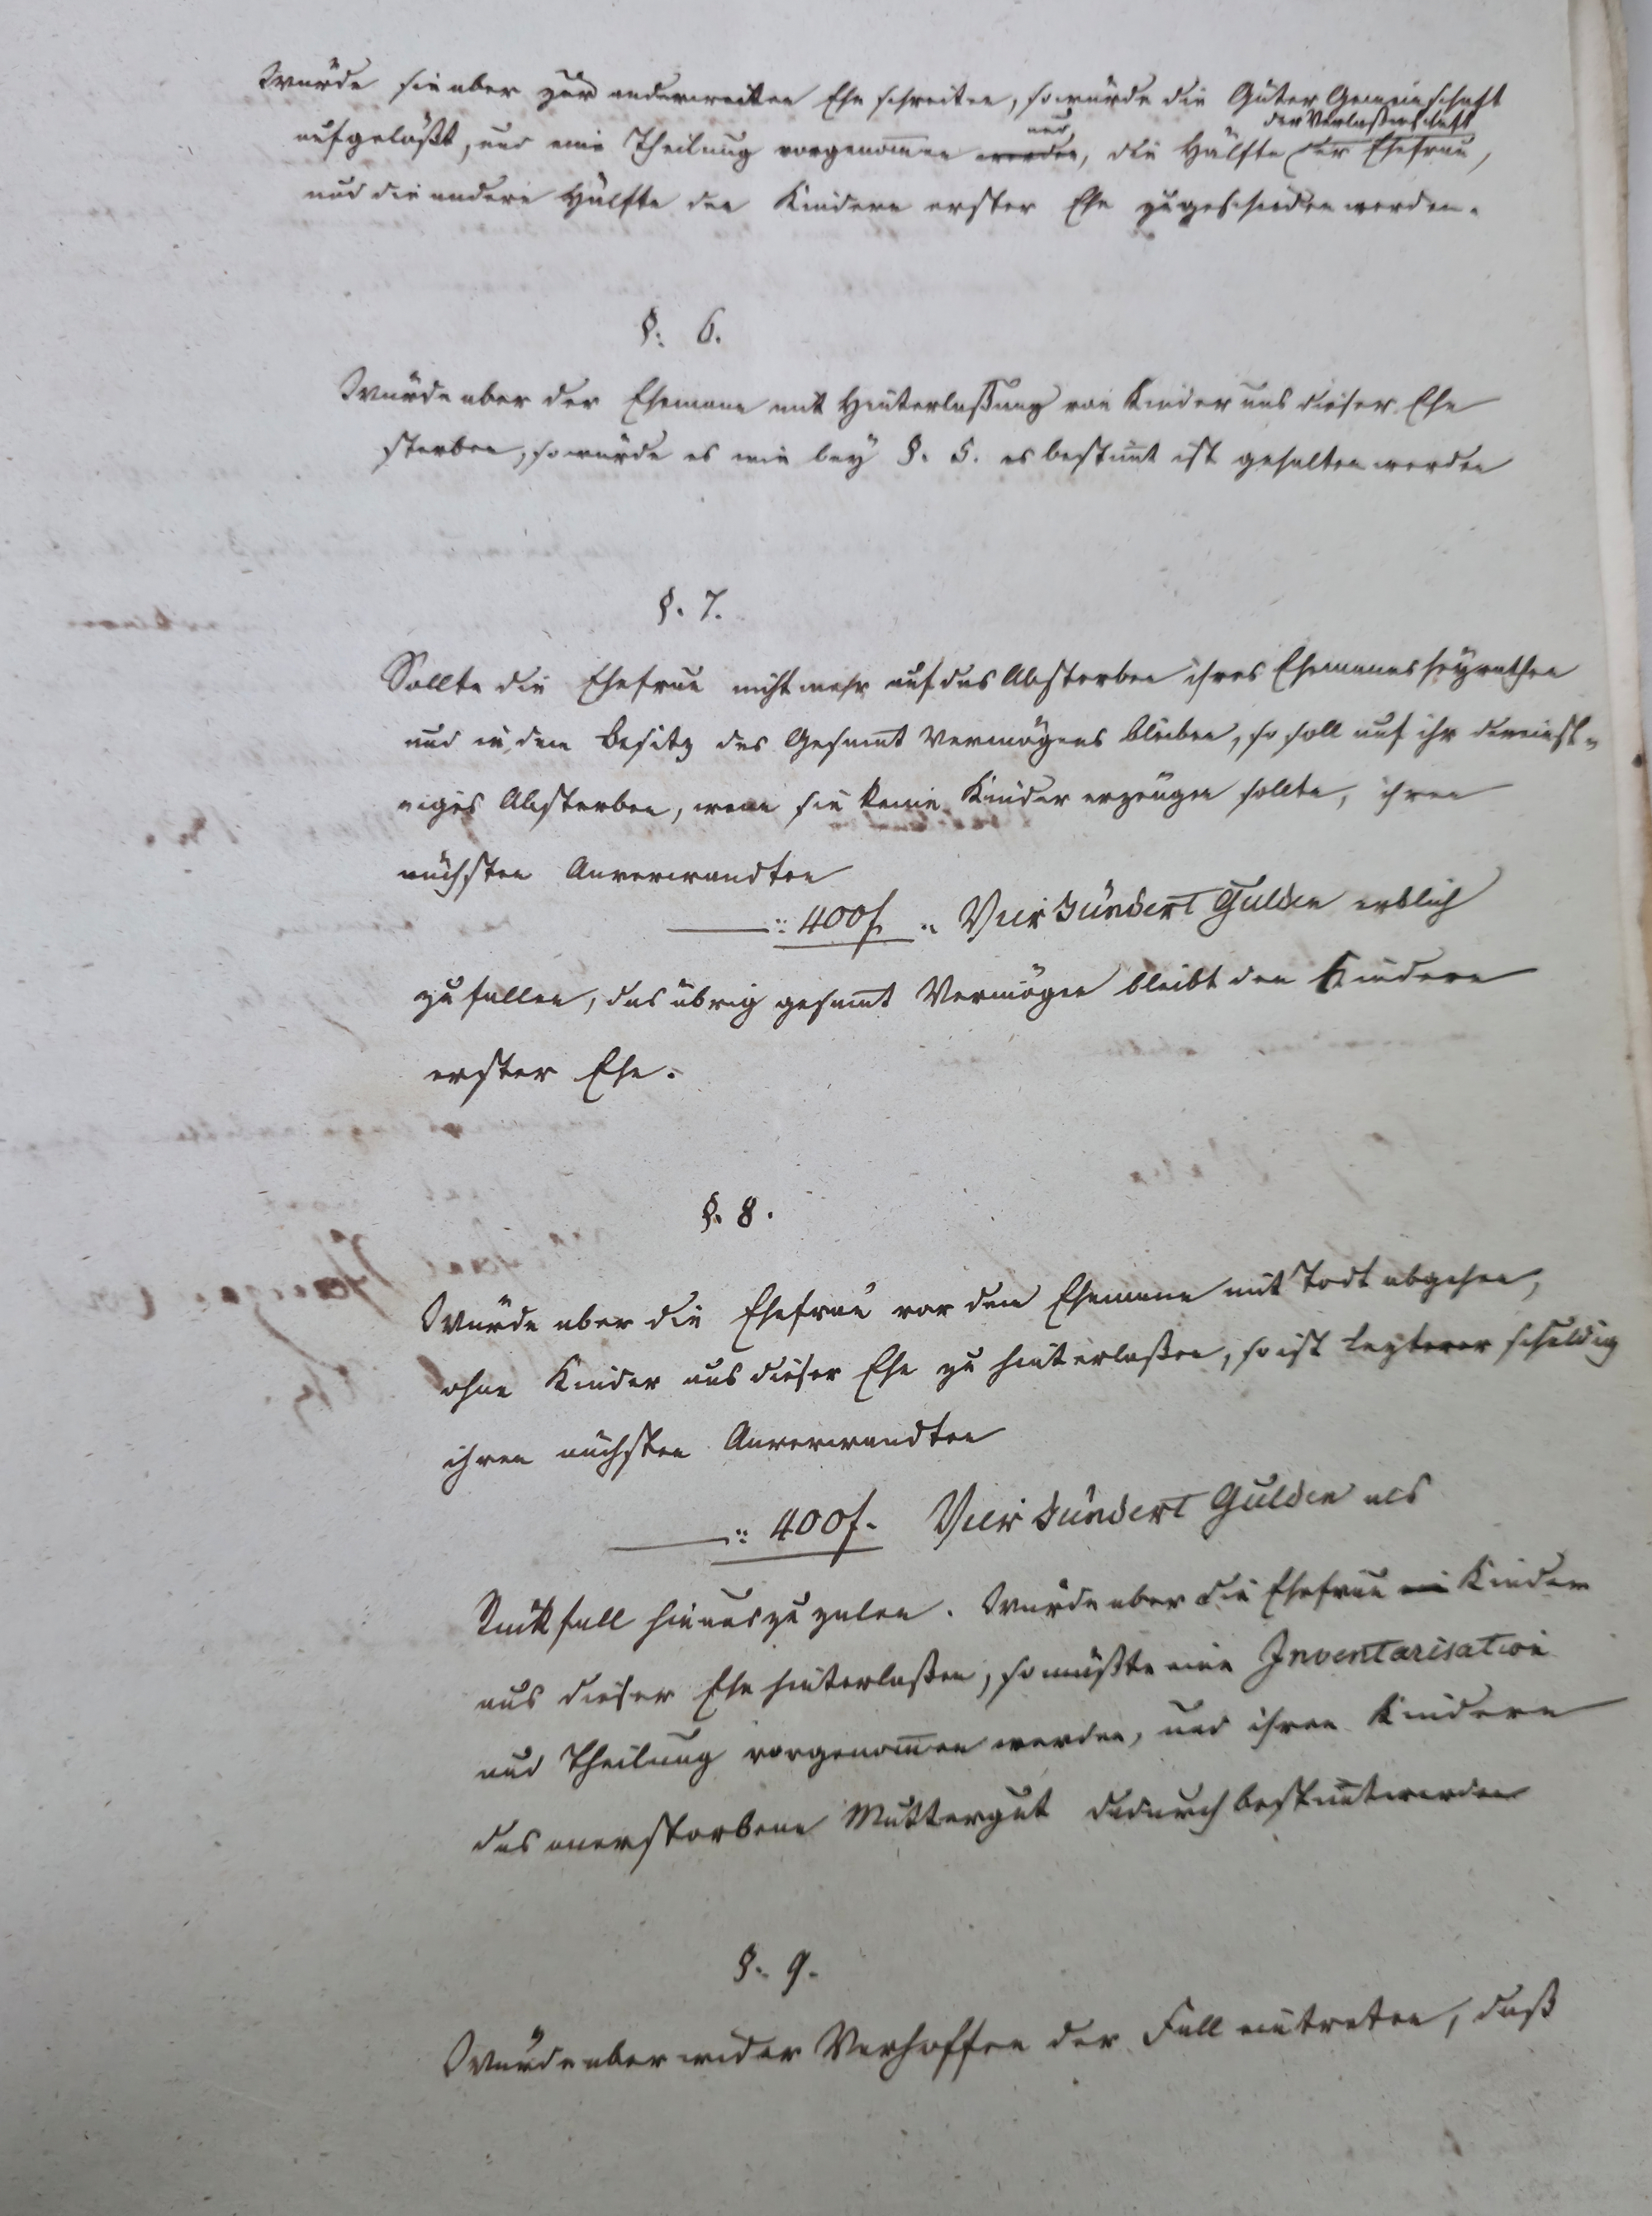 Würde sie aber zur anderweiten Ehe schreiten, so würde die Güter Gemeinschaft
aufgelößt, und eine Theilung vorgenom̄en werden, und die Hälfte der Verlaßenschaft der Ehefrau,
und die andere Hälfte den Kindern erster Ehe zugeschieden werden.
§. 6.
Würde aber der Ehemann mit Hinterlaßung von Kinder aus dieser Ehe
sterben, so würde es wie bey §. 5. es bestim̄t ist gehalten werden
§. 7.
Sollte die Ehefrau nicht mehr auf das Absterben ihres Ehemanns heyrathen
und in dem Besitz des Gesam̄t Vermögens bleiben, so soll auf ihr dereinst-
niges Absterben, wenn sie keine Kinder erzeugen sollte, ihren
nächsten Anverwandten
400f. Vier Hundert Gulden erblich
zufallen, das übrig gesam̄t Vermögen bleibt den Kindern
erster Ehe.
§. 8.
Würde aber die Ehefrau vor dem Ehemann mit Todt abgehen,
ohne Kinder aus dieser Ehe zu hinterlaßen, so ist lezterer schuldig
ihren nächsten Anverwandten
400f. Vier Hundert Gulden als
Rückfall hinauszuzalen. Würde aber die Ehefrau Kinder
aus dieser Ehe hinterlaßen, so müßte eine Inventarisation
und Theilung vorgenom̄en werden, und ihren Kindern
das anerstorbene Muttergut dadurch bestim̄t werden
§. 9.
Würde aber wider Verhoffen der Fall eintreten, daß